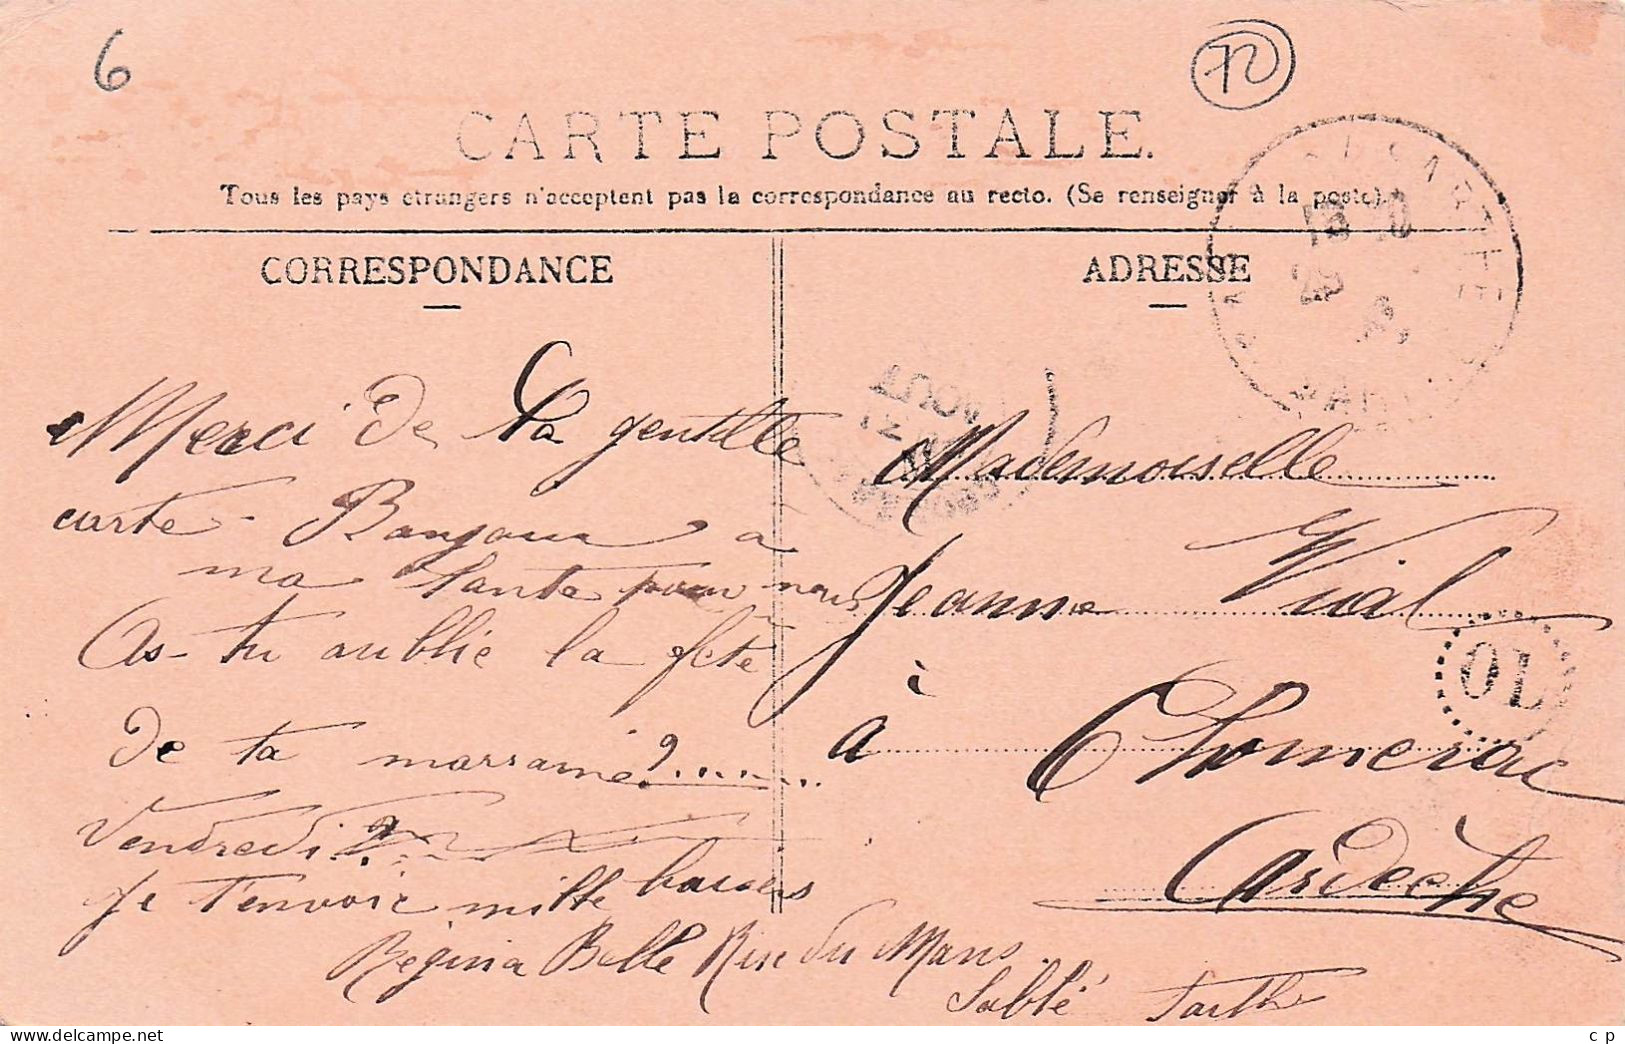 6
CARTE POSTALE.
Tous les pays étrangers n'acceptent pas la correspondance au recto. (Se renseigner à la poste).
CORRESPONDANCE
Merci de ta gentille
carte. Bonjour à
ma tante pour nous
As-tu oublié la fête
de ta marraine?.......
Vendredi
Je t'envoie mille baisers
Régina Belle Rue du Mans
Sablé Sarthe
ADRESSE
AOUT
Mademoiselle
Jeanne Vial
à
a Chomerac
Ardèche
OL
c p